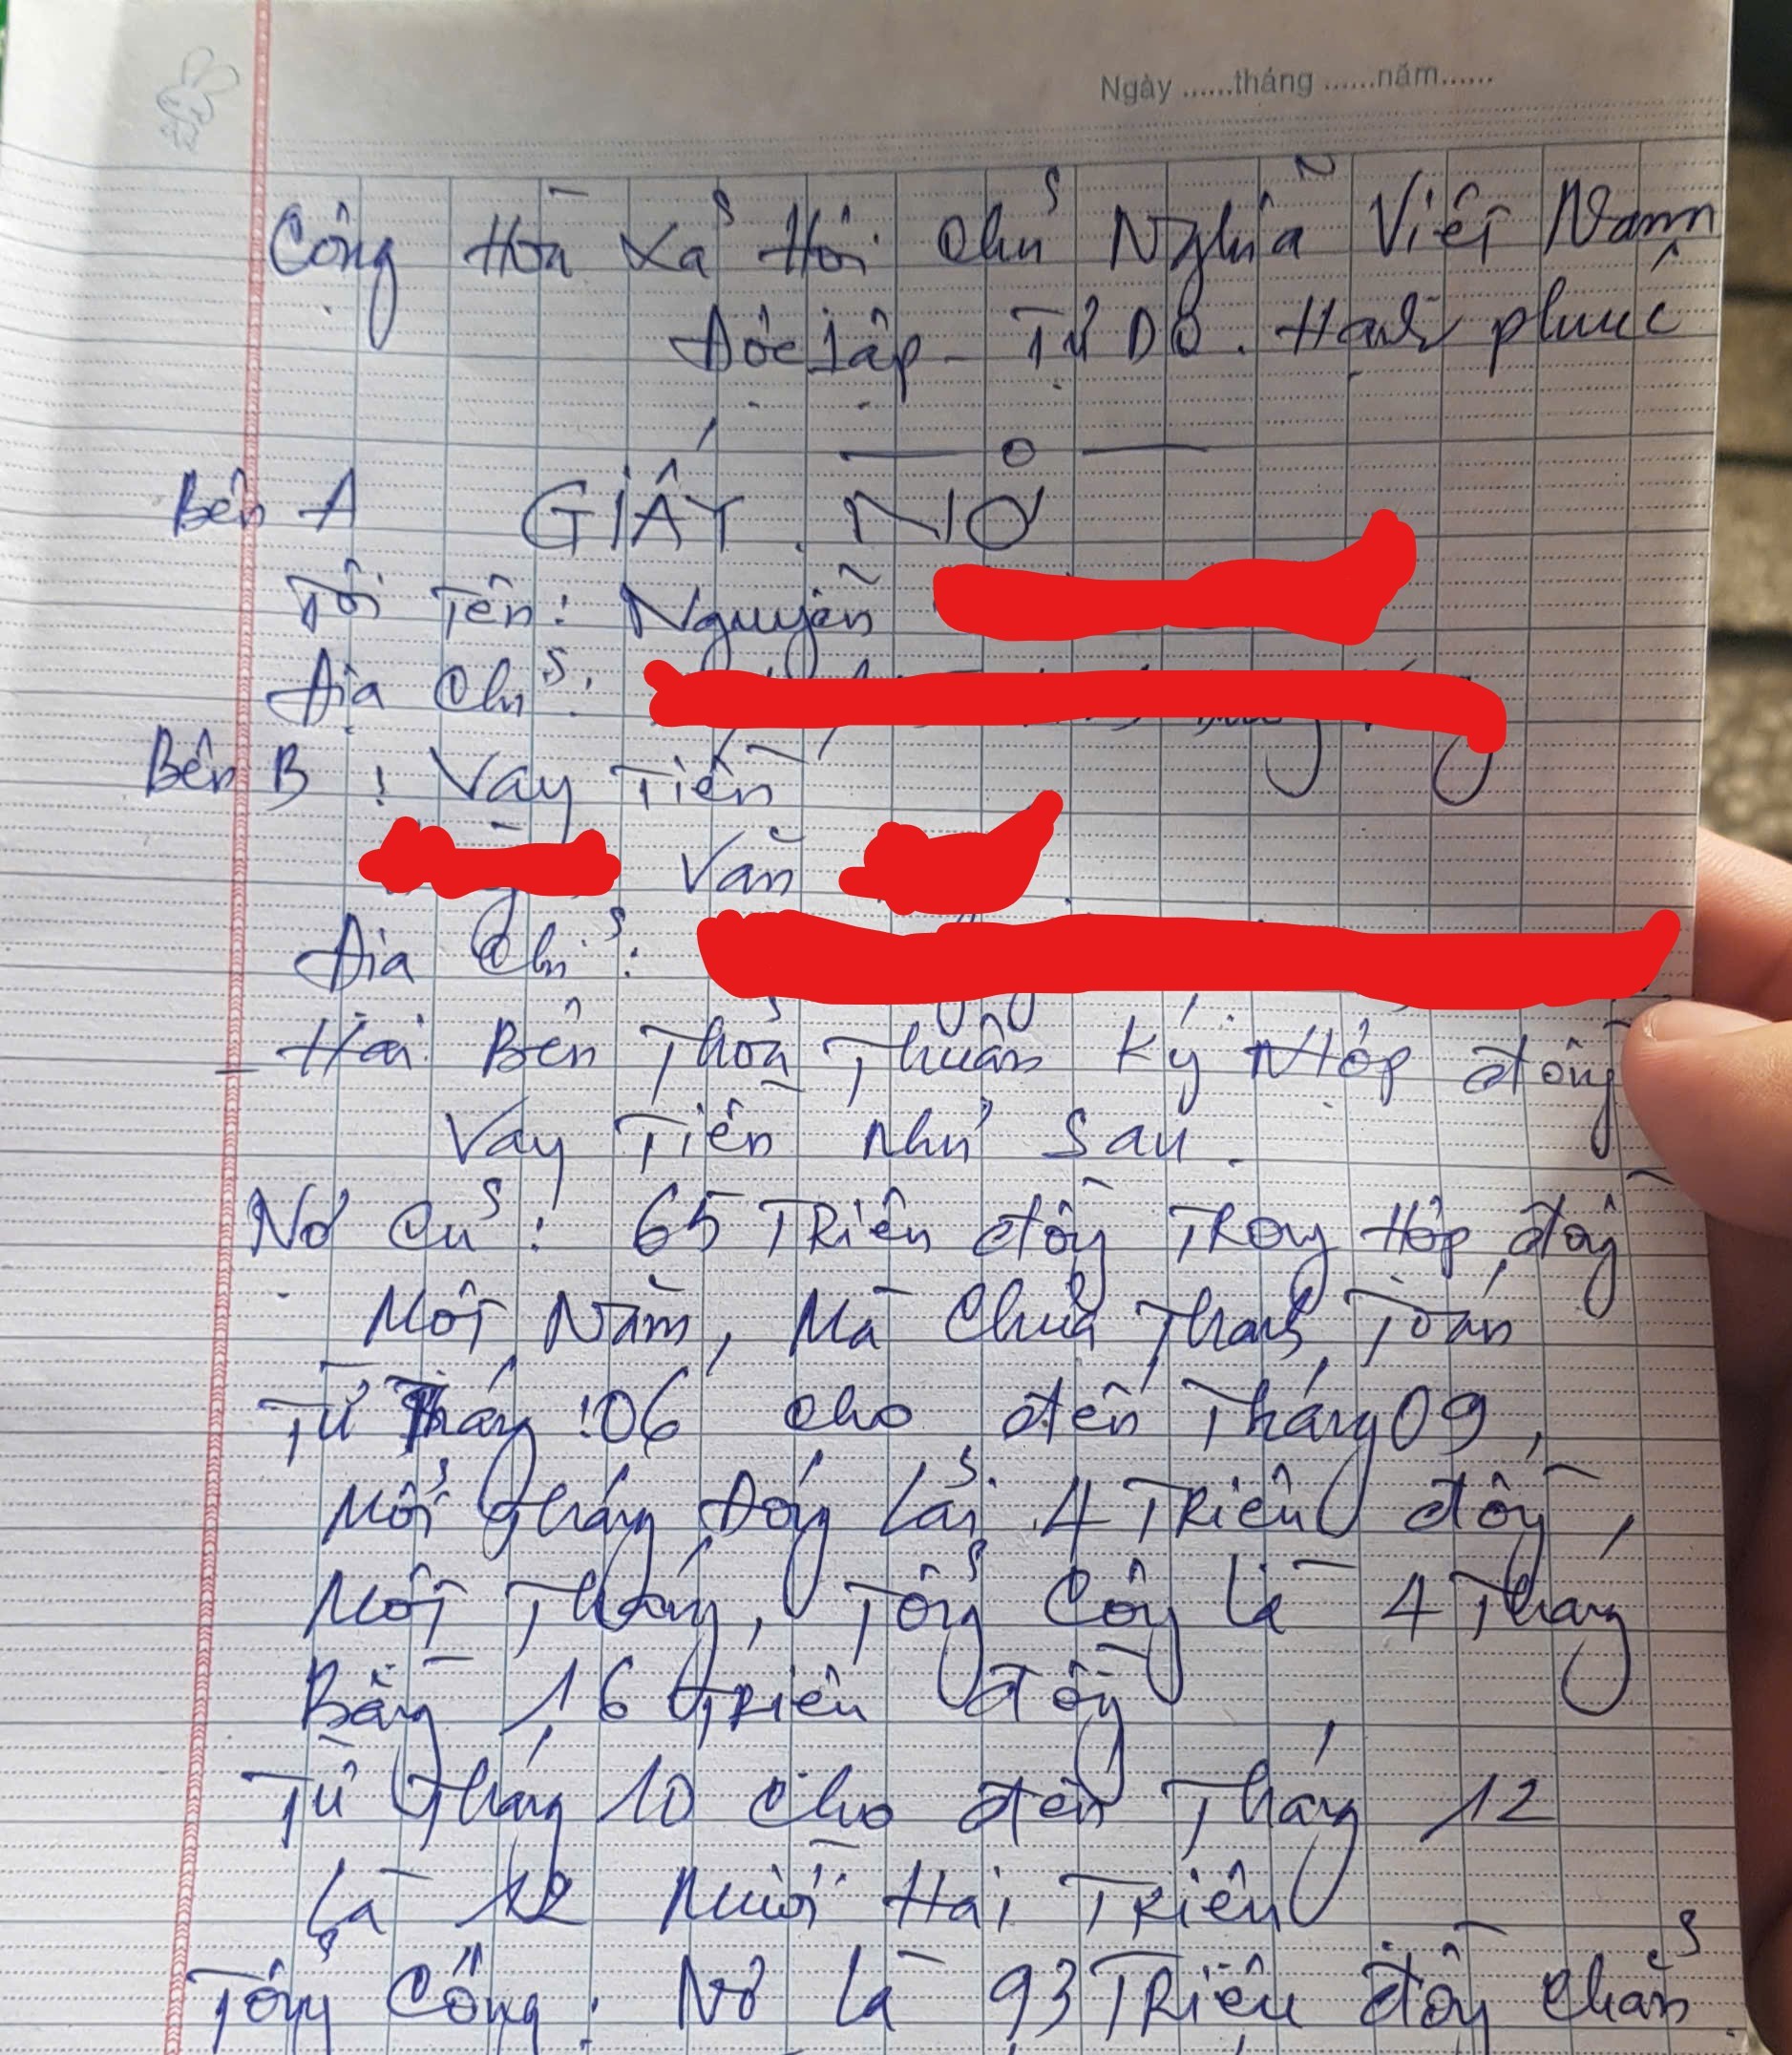 Ngày ......tháng ......năm......
Cộng Hòa Xả Hội Chủ Nghĩa Việt Nam
Độc lập - Tự Do. Hạnh phuc
Bên A GIẤY NỢ
Tôi Tên: Nguyễn
Địa Chỉ:
Bên B : Vay Tiền
Văn
Địa Chỉ:
Hai Bên Thỏa Thuận Ký Hợp đồng
Vay Tiền Như Sau.
Nợ Củ: 65 Triệu đồng Trong Hợp đồng
Một Năm, Mà Chưa Thanh Toán
Từ Tháng: 06 cho đến Tháng 09,
Mổi tháng Đóng Lải 4 Triệu đồng,
Một Tháng, Tổng Cộng là 4 Tháng
Bằng 16 triệu đồng
Từ tháng 10 Cho đến Tháng 12
Là 12 Mười Hai Triệu
Tổng Cộng: Nợ Là 93 Triệu đồng chẳn